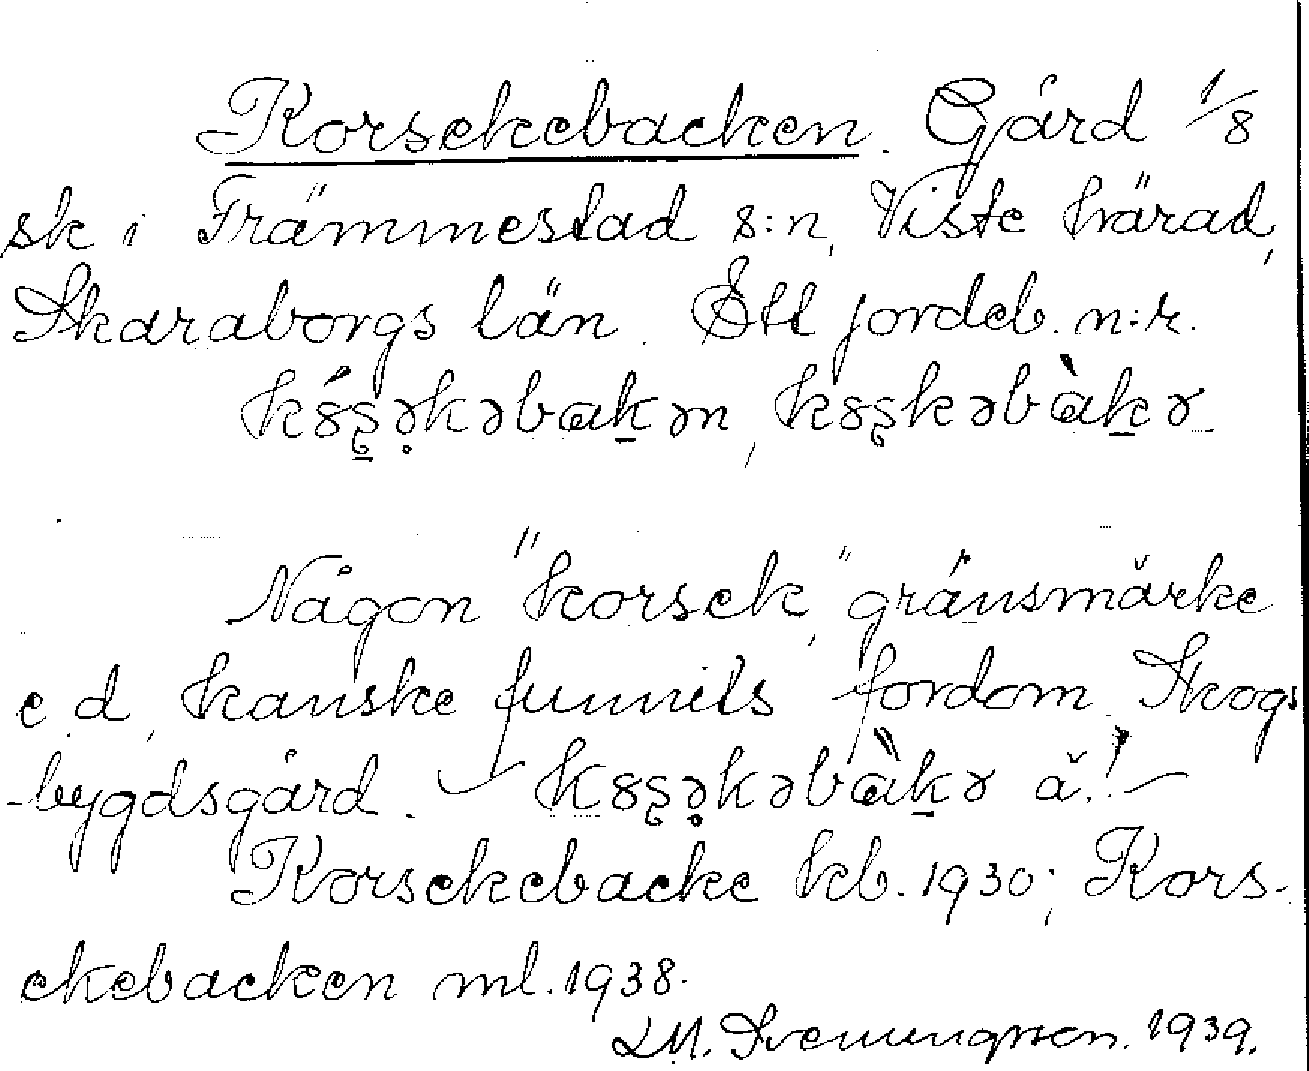 Korsekebacken. Gård 1/8
sk i Främmestad s:n, Viste härad,
Skaraborgs län. Ett jordeb. n:r.
Någon "korsek," gränsmärke
e. d., kanske funnits fordom. Skogs
-bygdsgård. — ä! —
Korsekebacke kb. 1930; Kors-
ekebacken ml. 1938.
LM. Svenungsson. 1939.